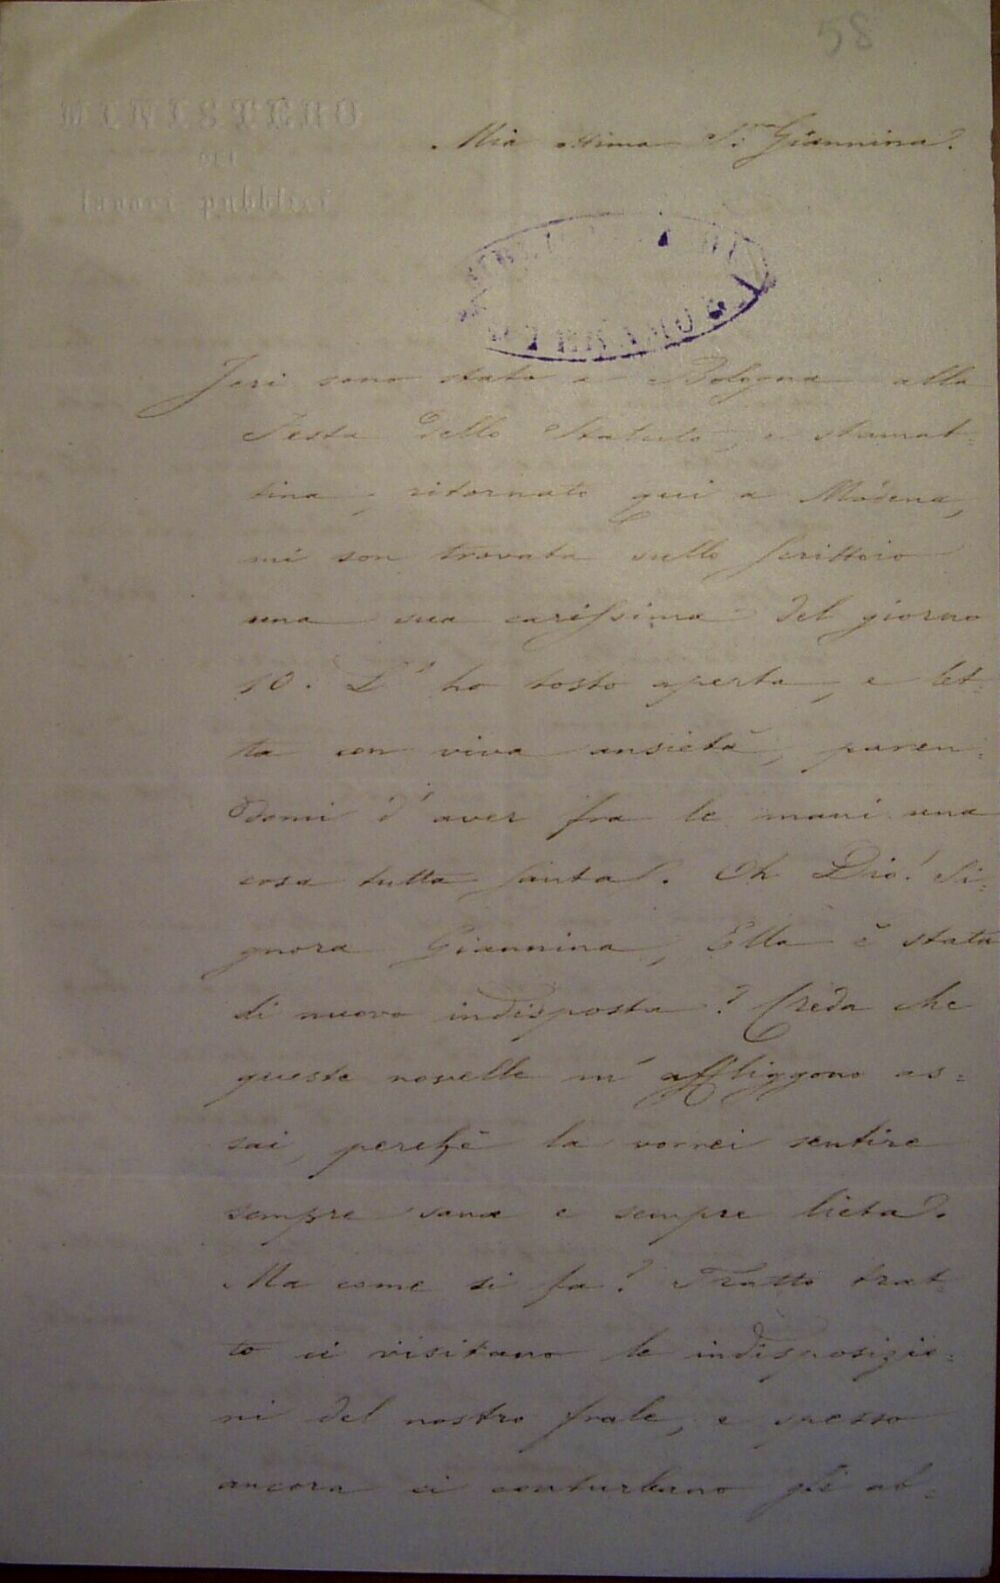 58
MINISTERO
DEI
lavori pubblici
Mia ottima S.ra Giannina.
Jeri sono stato a Bologna alla
Festa dello Statuto, e stamat-
tina, ritornato qui a Modena,
mi son trovata sullo scrittoio
una sua carissima del giorno
10. L'ho tosto aperta, e let-
ta con viva ansietà, paren-
domi d'aver fra le mani una
cosa tutta santa. Oh Dio! Si-
gnora Giannina, Ella è stata
di nuovo indisposta? Creda che
queste novelle m'affliggono as-
sai, perchè la vorrei sentire
sempre sana e sempre lieta.
Ma come si fa? Tratto trat-
to ci visitano le indisposizio-
ni del nostro frale, e spesso
ancora ci conturbano gli ab-